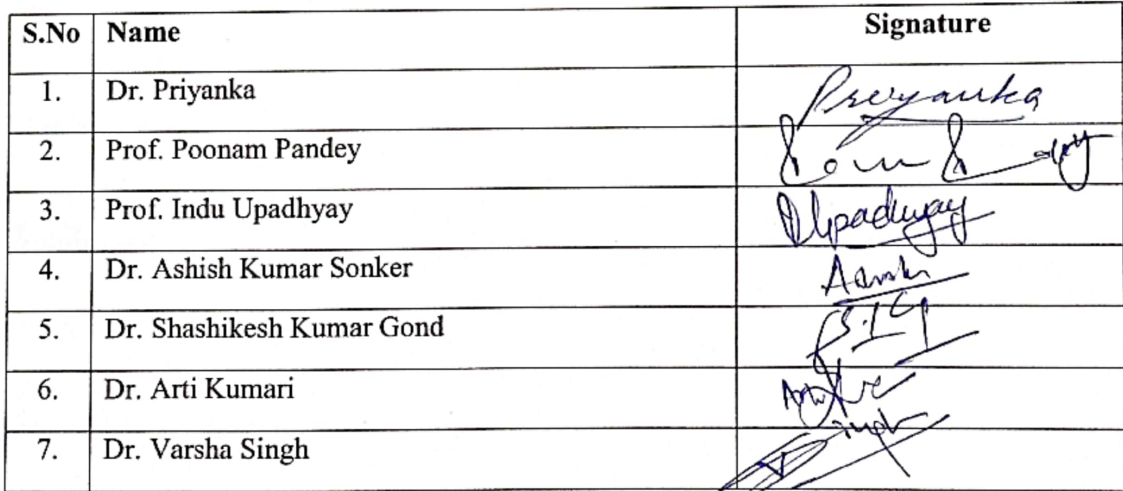 S.No Name Signature
1. Dr. Priyanka Priyanka
2. Prof. Poonam Pandey
3. Prof. Indu Upadhyay Upadhyay
4. Dr. Ashish Kumar Sonker
5. Dr. Shashikesh Kumar Gond
6. Dr. Arti Kumari
7. Dr. Varsha Singh